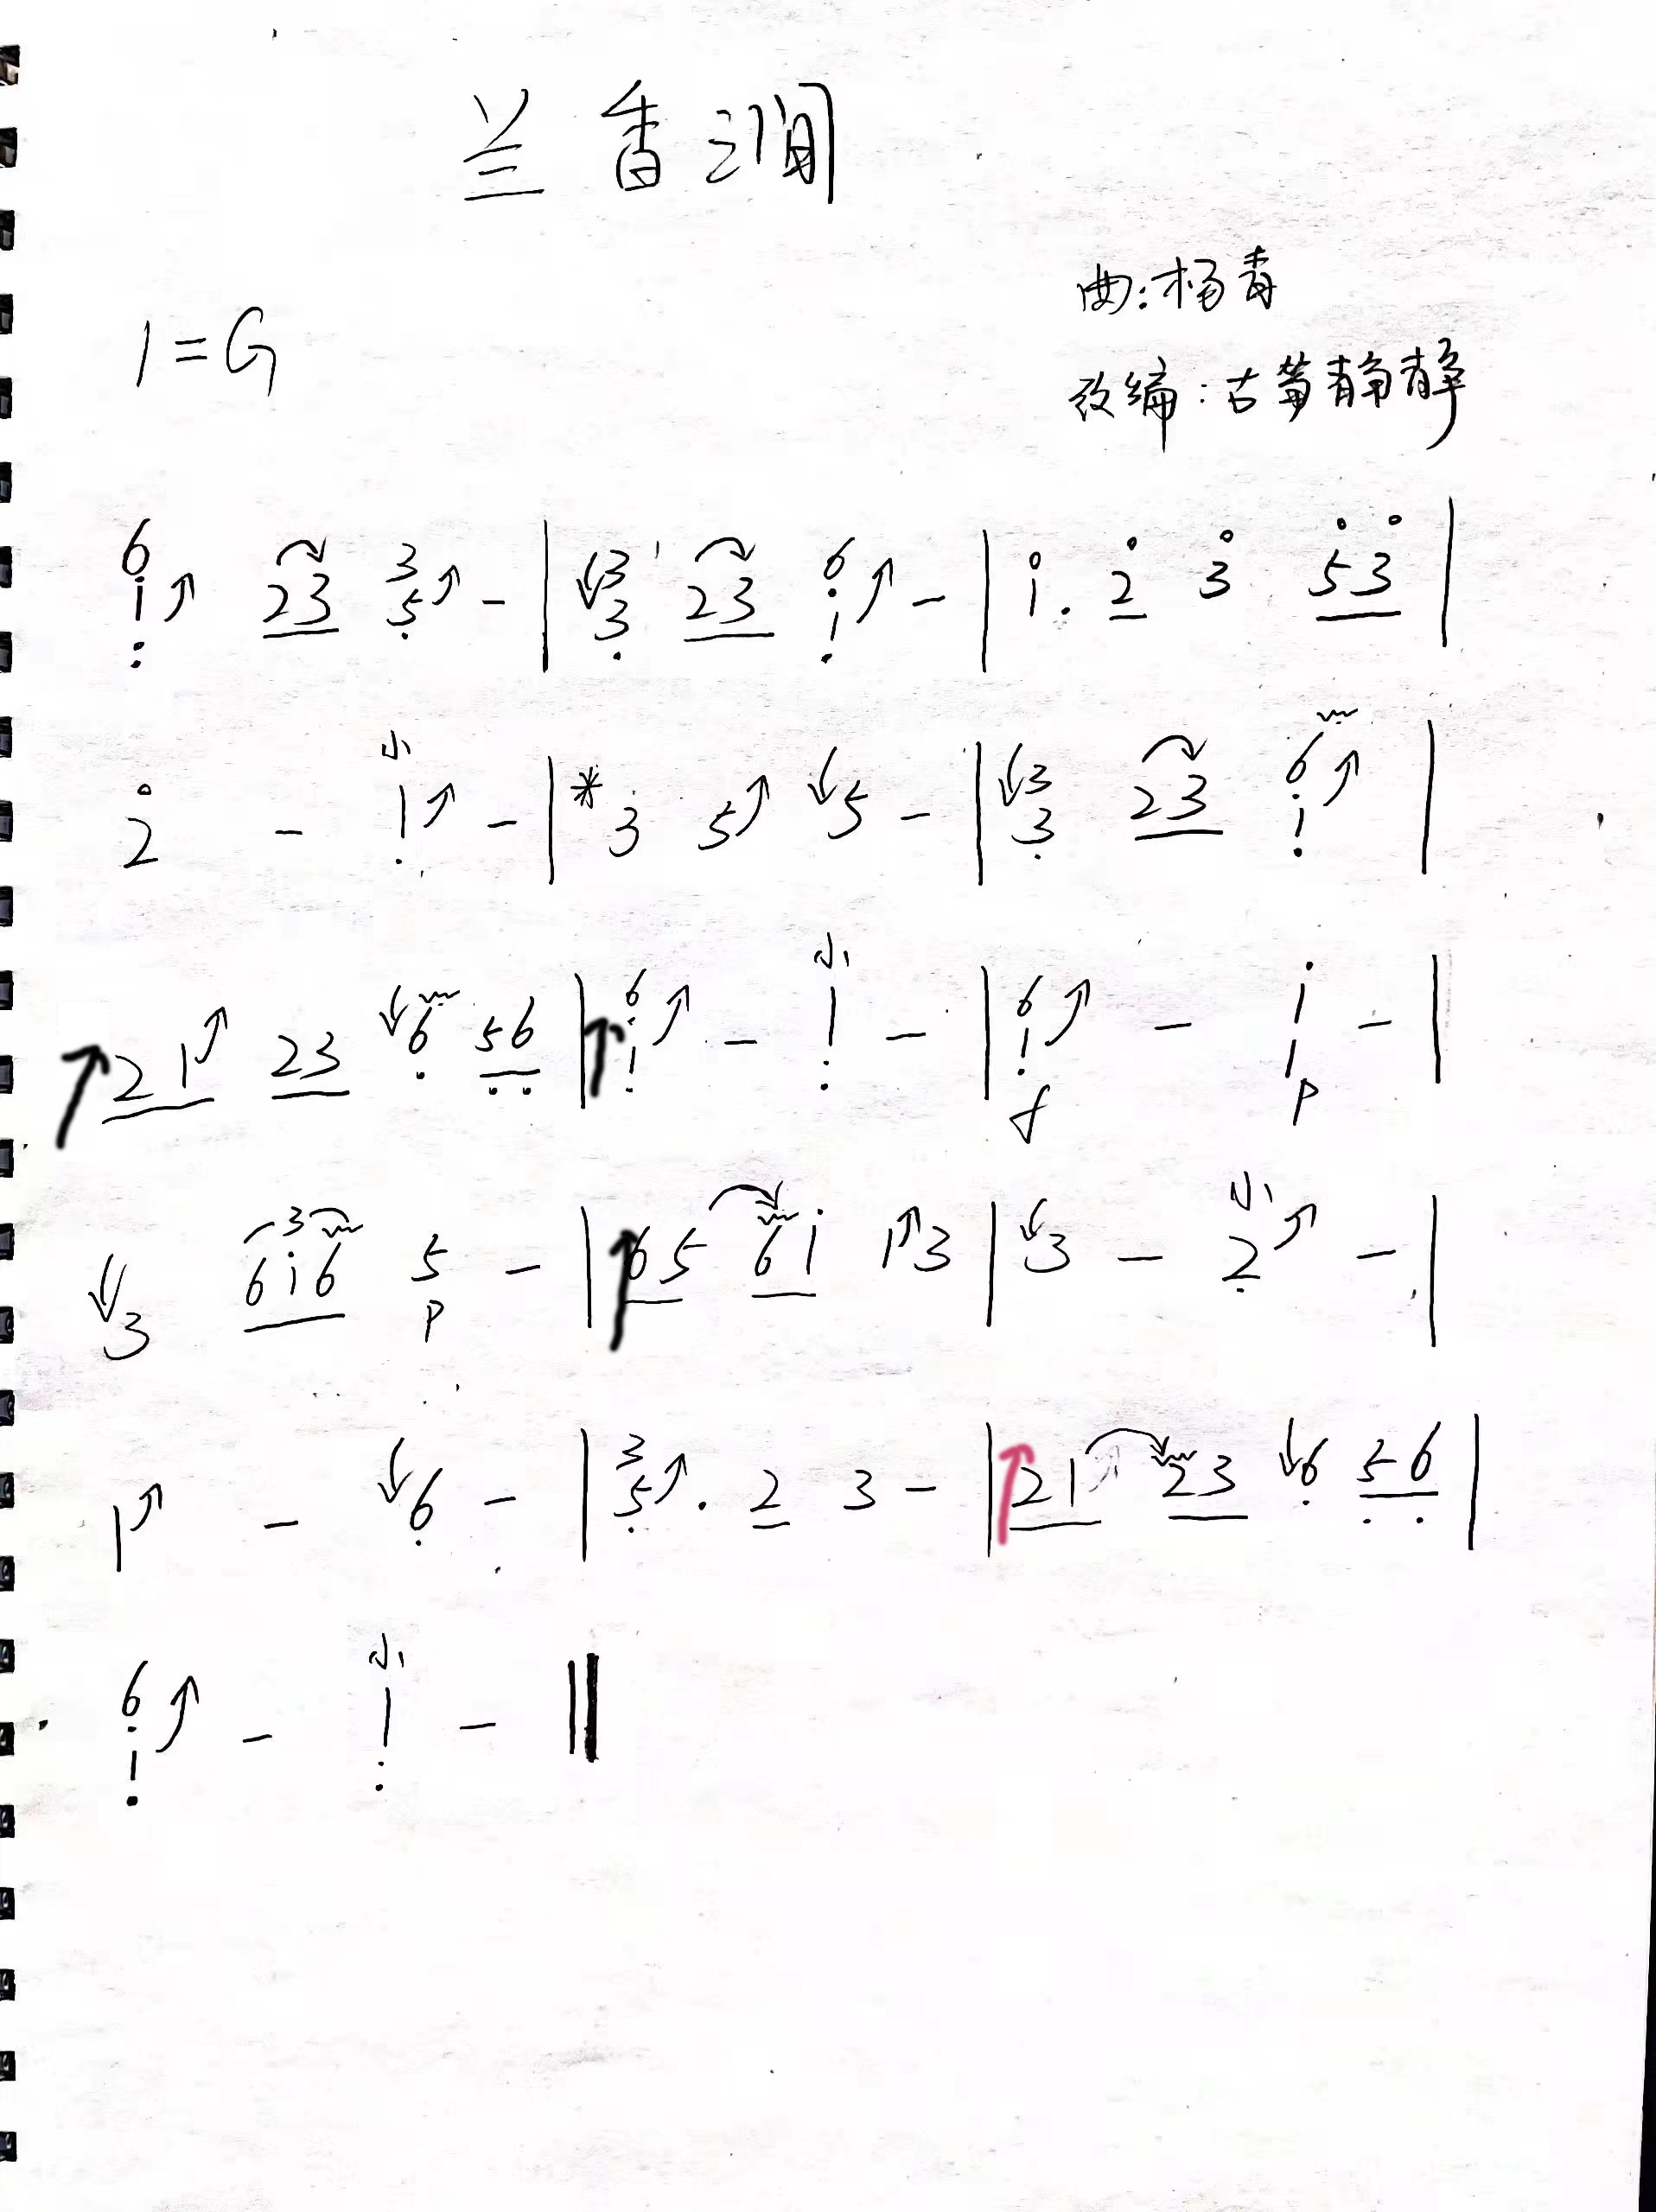 兰香润
曲:杨青
1=G
改编:古筝静静
6 i 23 3 5 - | 3 3 23 6 i - | i. 2 3 53 |
小
2 - 1 - | *3 5 5 - | 3 3 23 6 i |
小
21 23 6 56 | 6 i - 1 - | 6 i - i 1 - |
f p
3 小
3 6i6 5 - | 65 6i 1 3 | 3 - 2 - |
p
1 - 6 - | 3 5. 2 3 - | 21 23 6 56 |
小
6 i - 1 - ‖